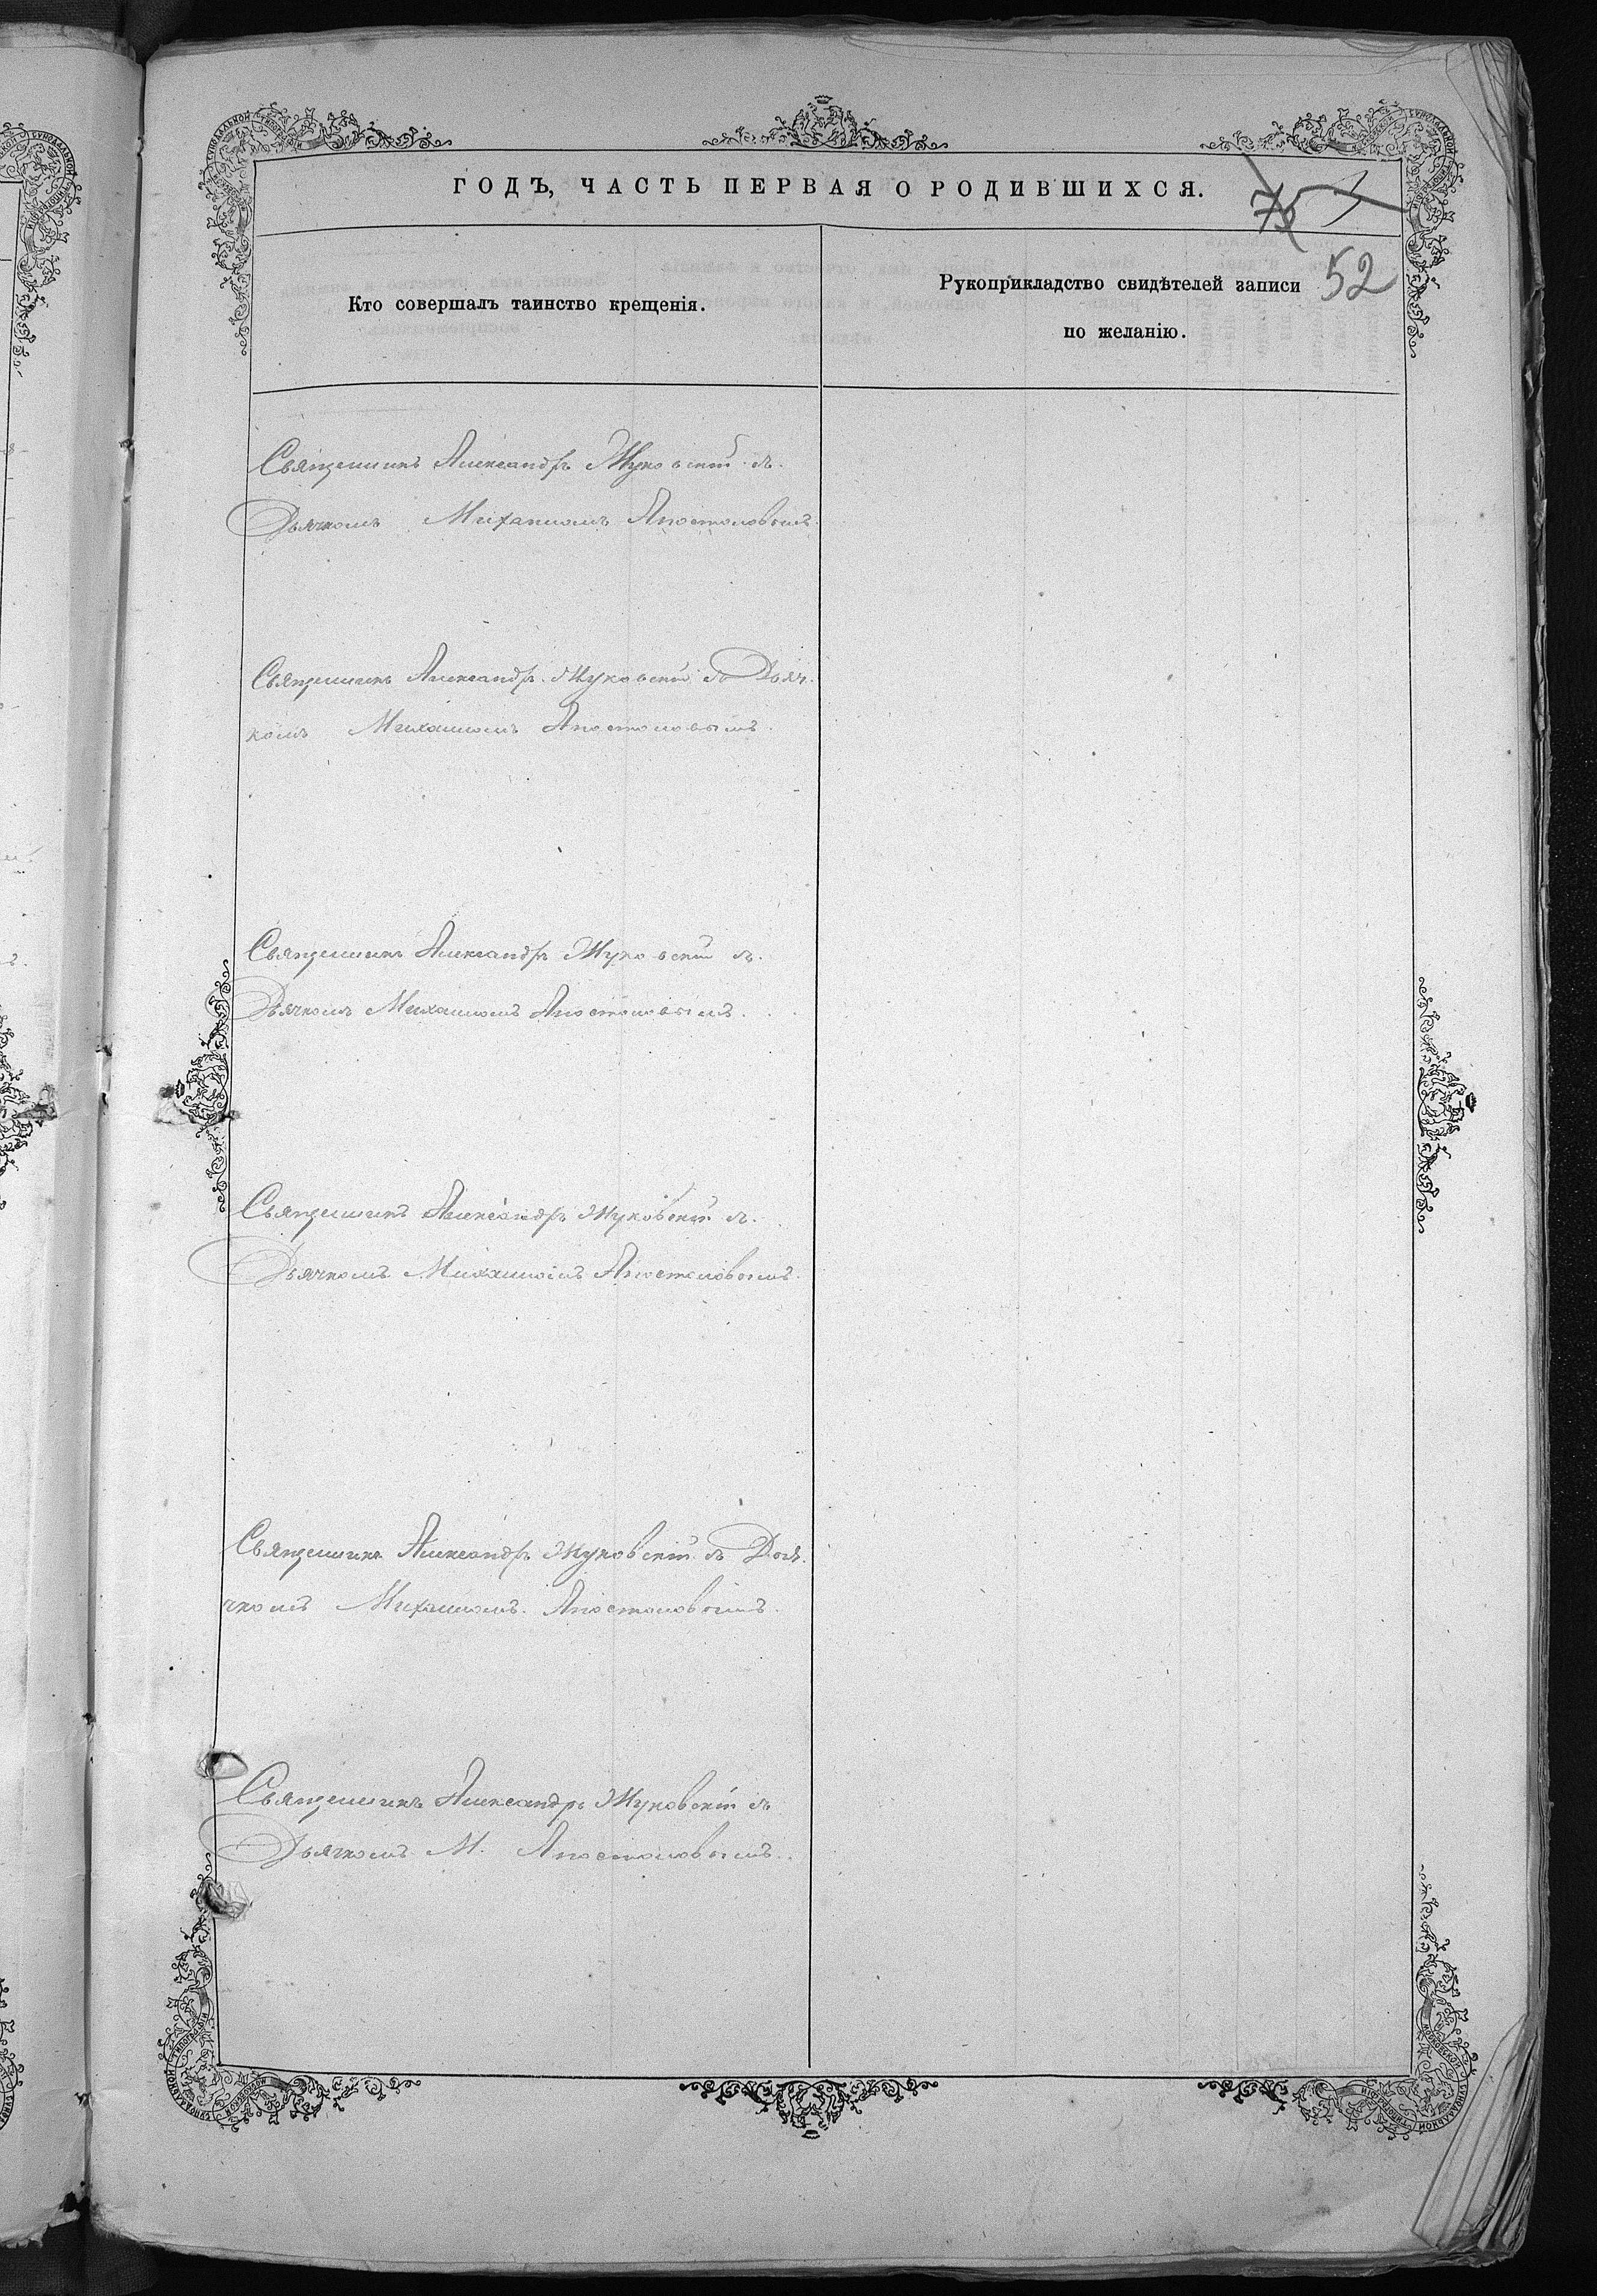 ГОДЪ, ЧАСТЬ ПЕРВАЯ О РОДИВШИХСЯ.
75
52
Кто совершалъ таинство крещенія.
Рукоприкладство свидѣтелей записи
по желанію.
Священникъ Александръ Жуковскій съ
Дьячкомъ Михаиломъ Апостоловымъ.
Священникъ Александръ Жуковскій съ Дьяч-
комъ Михаиломъ Апостоловымъ.
Священникъ Александръ Жуковскій съ
Дьячкомъ Михаиломъ Апостоловымъ.
Священникъ Александръ Жуковскій съ
Дьячкомъ Михаиломъ Апостоловымъ.
Священникъ Александръ Жуковскій съ Дья-
чкомъ Михаиломъ Апостоловымъ.
Священникъ Александръ Жуковскій съ
Дьячкомъ М. Апостоловымъ.